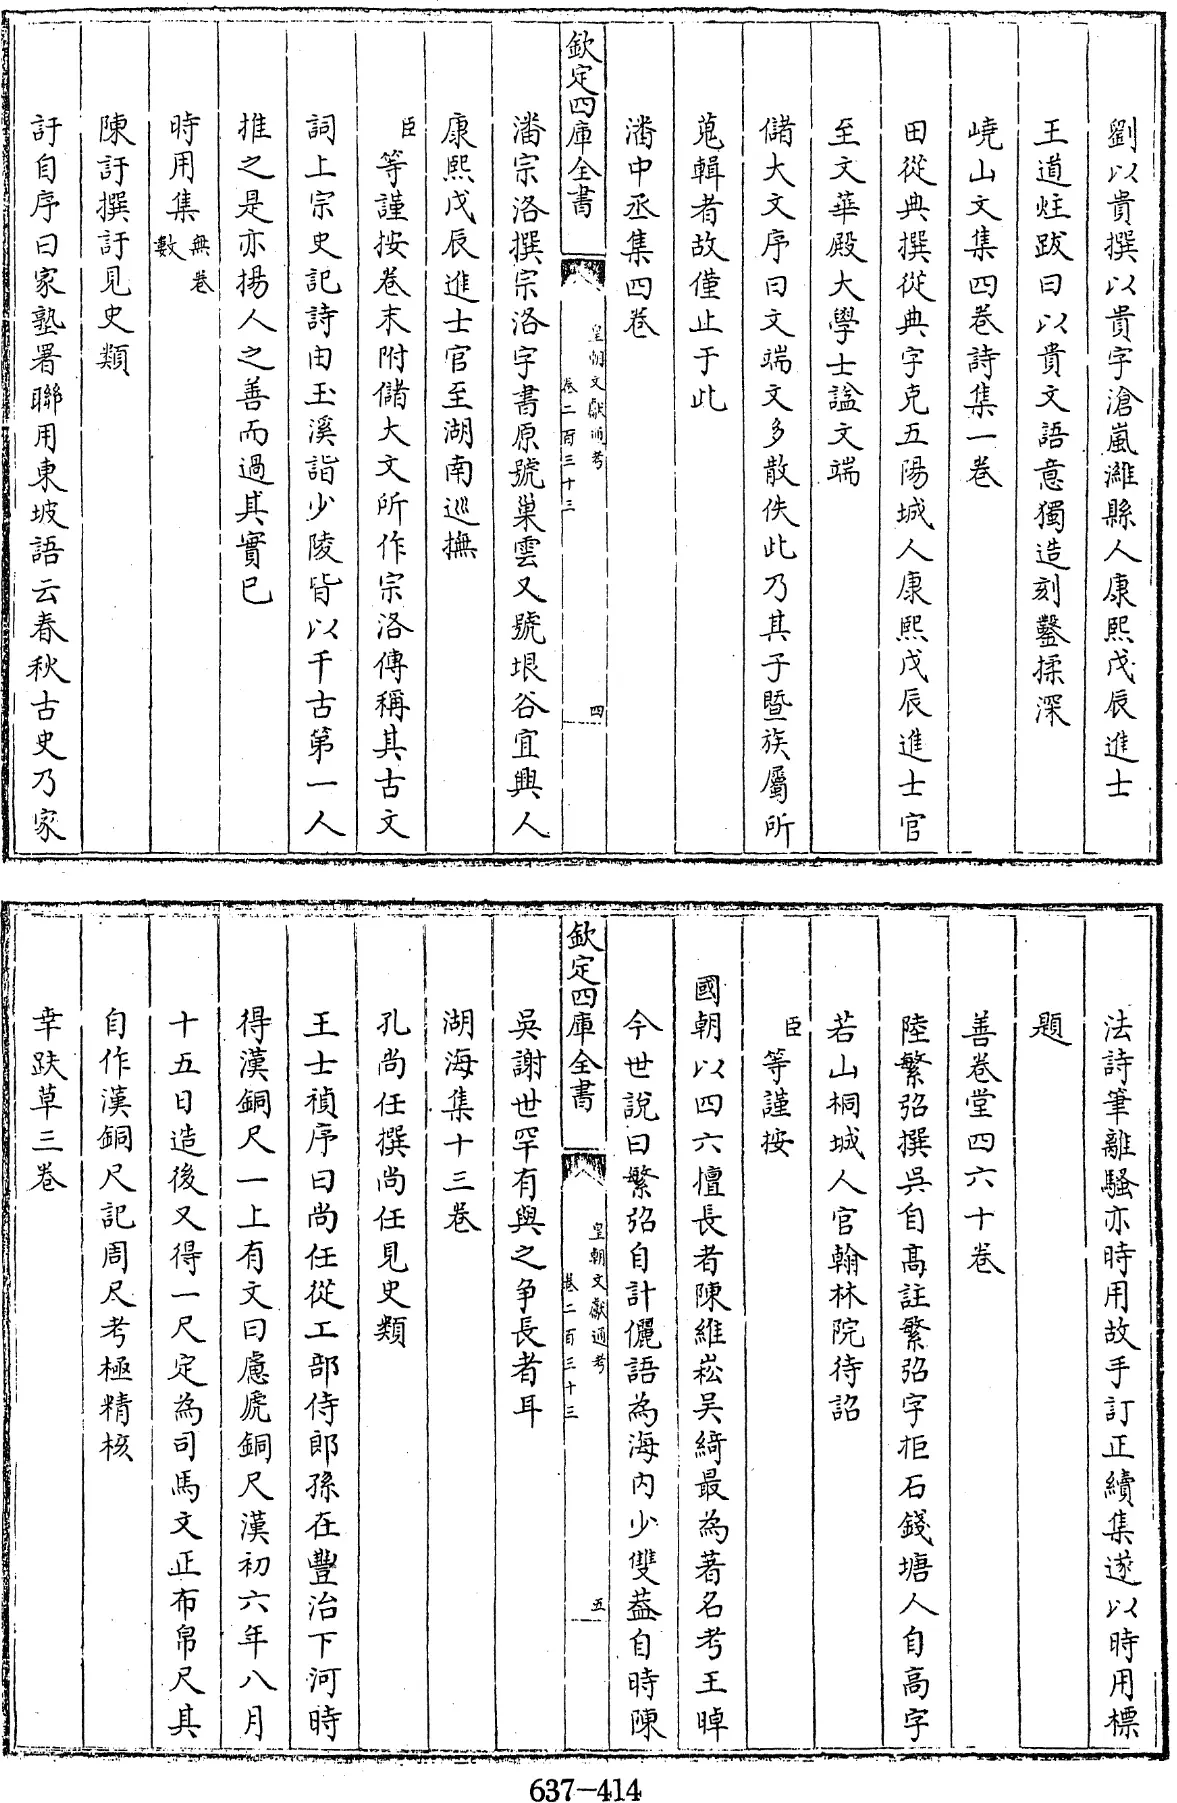 劉以貴撰以貴字滄嵐濰縣人康熙戊辰進士
王道炷跋曰以貴文語意獨造刻鑿揉深
嶢山文集四卷詩集一卷
田從典撰從典字克五陽城人康熙戊辰進士官
至文華殿大學士諡文端
儲大文序曰文端文多散佚此乃其子暨族屬所
蒐輯者故僅止于此
潘中丞集四卷
欽定四庫全書
皇朝文獻通考
卷二百三十三
四
潘宗洛撰宗洛字書原號巢雲又號垠谷宜興人
康熙戊辰進士官至湖南巡撫
臣等謹按卷末附儲大文所作宗洛傳稱其古文
詞上宗史記詩由玉溪詣少陵皆以千古第一人
推之是亦揚人之善而過其實已
時用集無卷數
陳訏撰訏見史類
訏自序曰家塾署聯用東坡語云春秋古史乃家
法詩筆離騷亦時用故手訂正續集遂以時用標
題
善卷堂四六十卷
陸繁弨撰吳自高註繁弨字拒石錢塘人自高字
若山桐城人官翰林院待詔
臣等謹按
國朝以四六擅長者陳維崧吳綺最為著名考王晫
今世說曰繁弨自計儷語為海內少雙葢自時陳
欽定四庫全書
皇朝文獻通考
卷二百三十三
五
吳謝世罕有與之争長者耳
湖海集十三卷
孔尚任撰尚任見史類
王士禎序曰尚任從工部侍郎孫在豐治下河時
得漢銅尺一上有文曰慮虒銅尺漢初六年八月
十五日造後又得一尺定為司馬文正布帛尺其
自作漢銅尺記周尺考極精核
幸跌草三卷
637-414